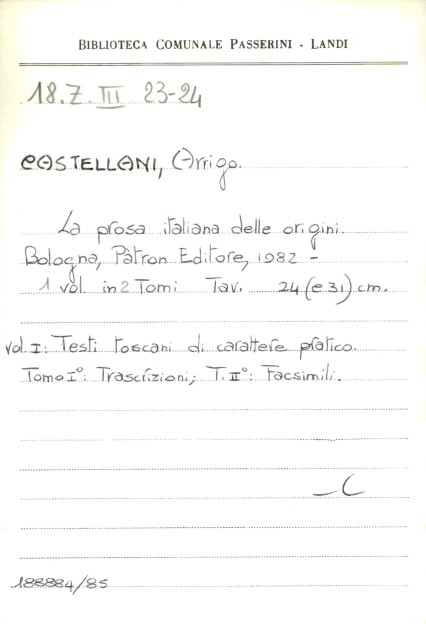 BIBLIOTECA COMUNALE PASSERINI - LANDI
18.Z.III 23-24
CASTELLANI, Arrigo.
La prosa italiana delle origini.
Bologna, Pàtron Editore, 1982 -
1 vol. in 2 Tomi Tav. 24 (e 31) cm.
vol. I: Testi toscani di carattere pratico.
Tomo I°: Trascrizioni; T. II°: Facsimili.
— C
188884/85